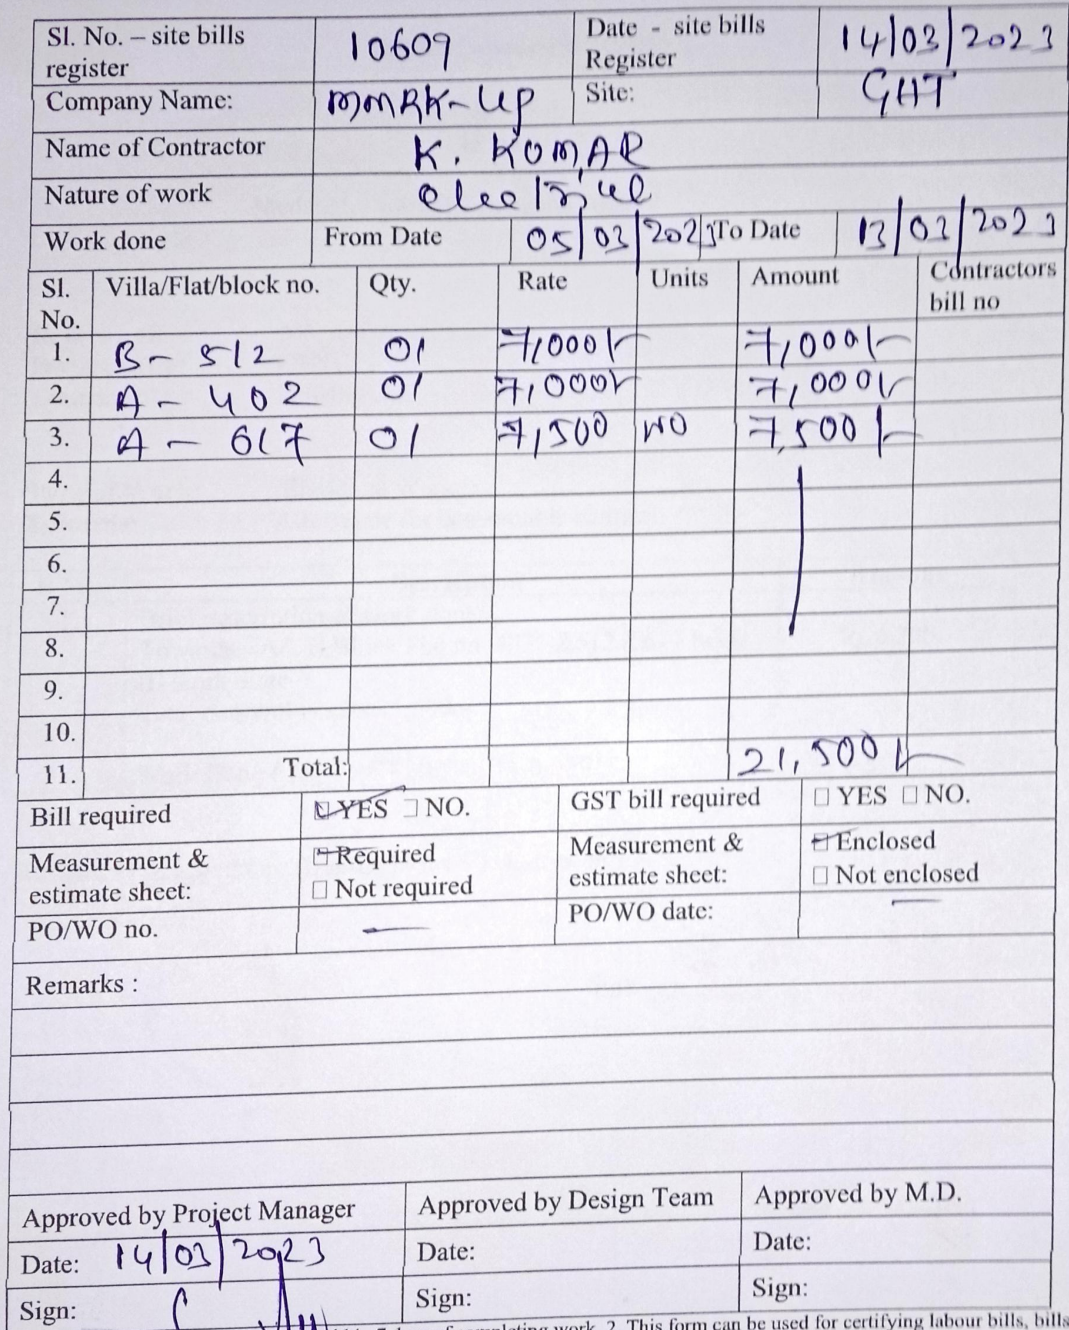 Sl. No. – site bills register 10609 Date - site bills Register 14/03/2023
Company Name: MMRK-UP Site: GHT
Name of Contractor K. KOMAR
Nature of work
Work done From Date 05/03/2023 To Date 13/03/2023
Sl. No. Villa/Flat/block no. Qty. Rate Units Amount Contractors bill no
1. B - 512 01 7,000/- 7,000/-
2. A - 402 01 7,000/- 7,000/-
3. A - 617 01 7,500 NO 7,500/-
4.
5.
6.
7.
8.
9.
10.
11. Total: 21,500/-
Bill required YES NO. GST bill required YES NO.
Measurement & estimate sheet: Required Not required Measurement & estimate sheet: Enclosed Not enclosed
PO/WO no. — PO/WO date: —
Remarks :
Approved by Project Manager Approved by Design Team Approved by M.D.
Date: 14/03/2023 Date: Date:
Sign: Sign: Sign:
work. 2. This form can be used for certifying labour bills, bills